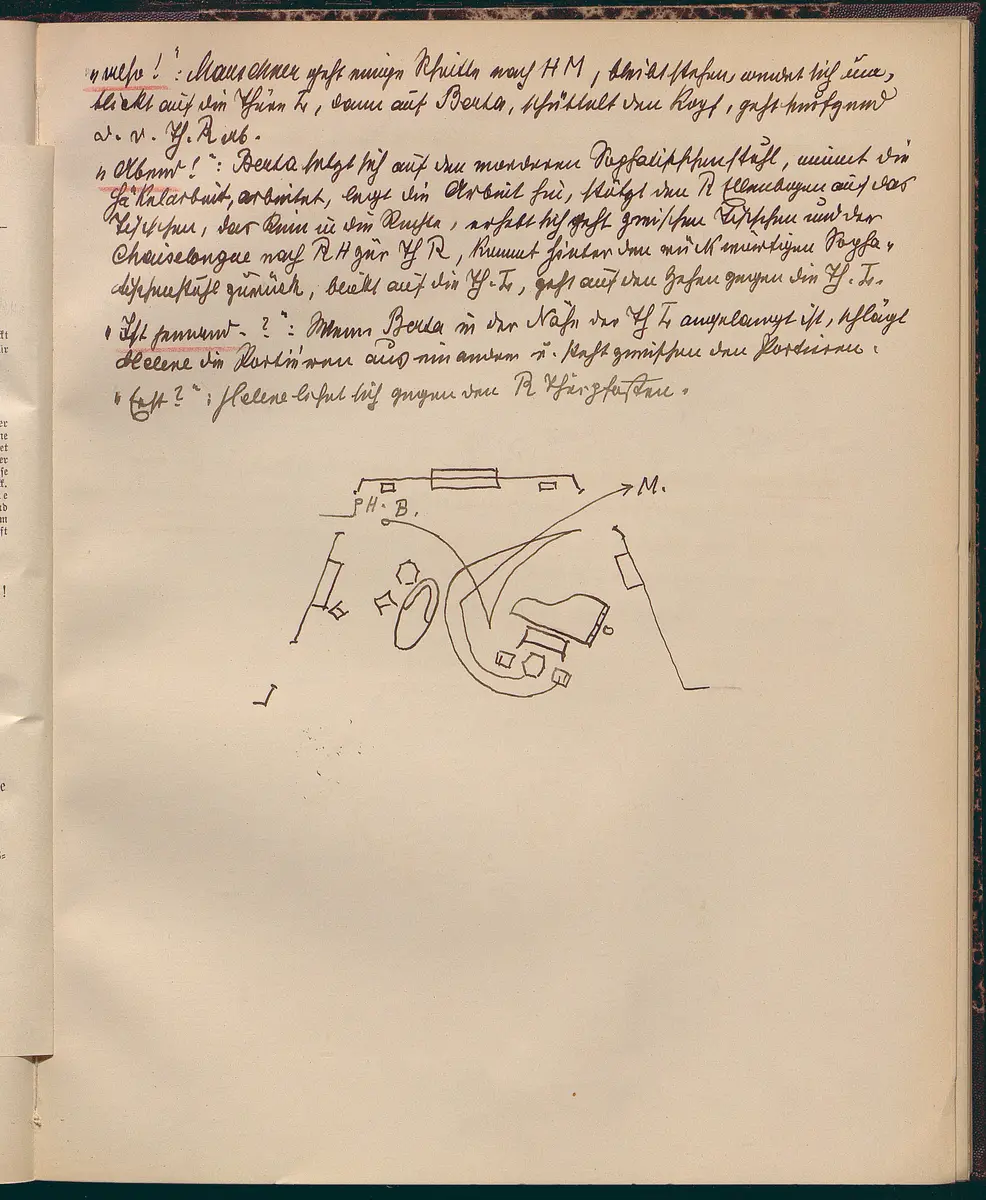 "also!": Marschner geht einige Schritte nach H M, bleibt stehen, wendet sich um,
blickt auf die Thüre L, dann auf Berta, schüttelt den Kopf, geht seufzend
d. d. Th. R ab.
"Abend!": Berta setzt sich auf den vorderen Sophatischenstuhl, nimmt die
Häkelarbeit, arbeitet, legt die Arbeit hin, stützt den R Ellenbogen auf das
Tischchen, das Kinn in die Rechte, erhebt sich geht zwischen Tischchen und der
Chaiselongue nach R H zur Th R, kommt hinter den rückwärtigen Sopha-
tischenstuhl zurück, blickt auf die Th. L, geht auf den Zehen gegen die Th. L.
"Ist jemand - ?": Wenn Berta in der Nähe der Th L angelangt ist, schlägt
Helene die Portièren auseinander u. steht zwischen den Portièren.
"Erst?": Helene lehnt sich gegen den R Thürpfosten.
M.
H. B.